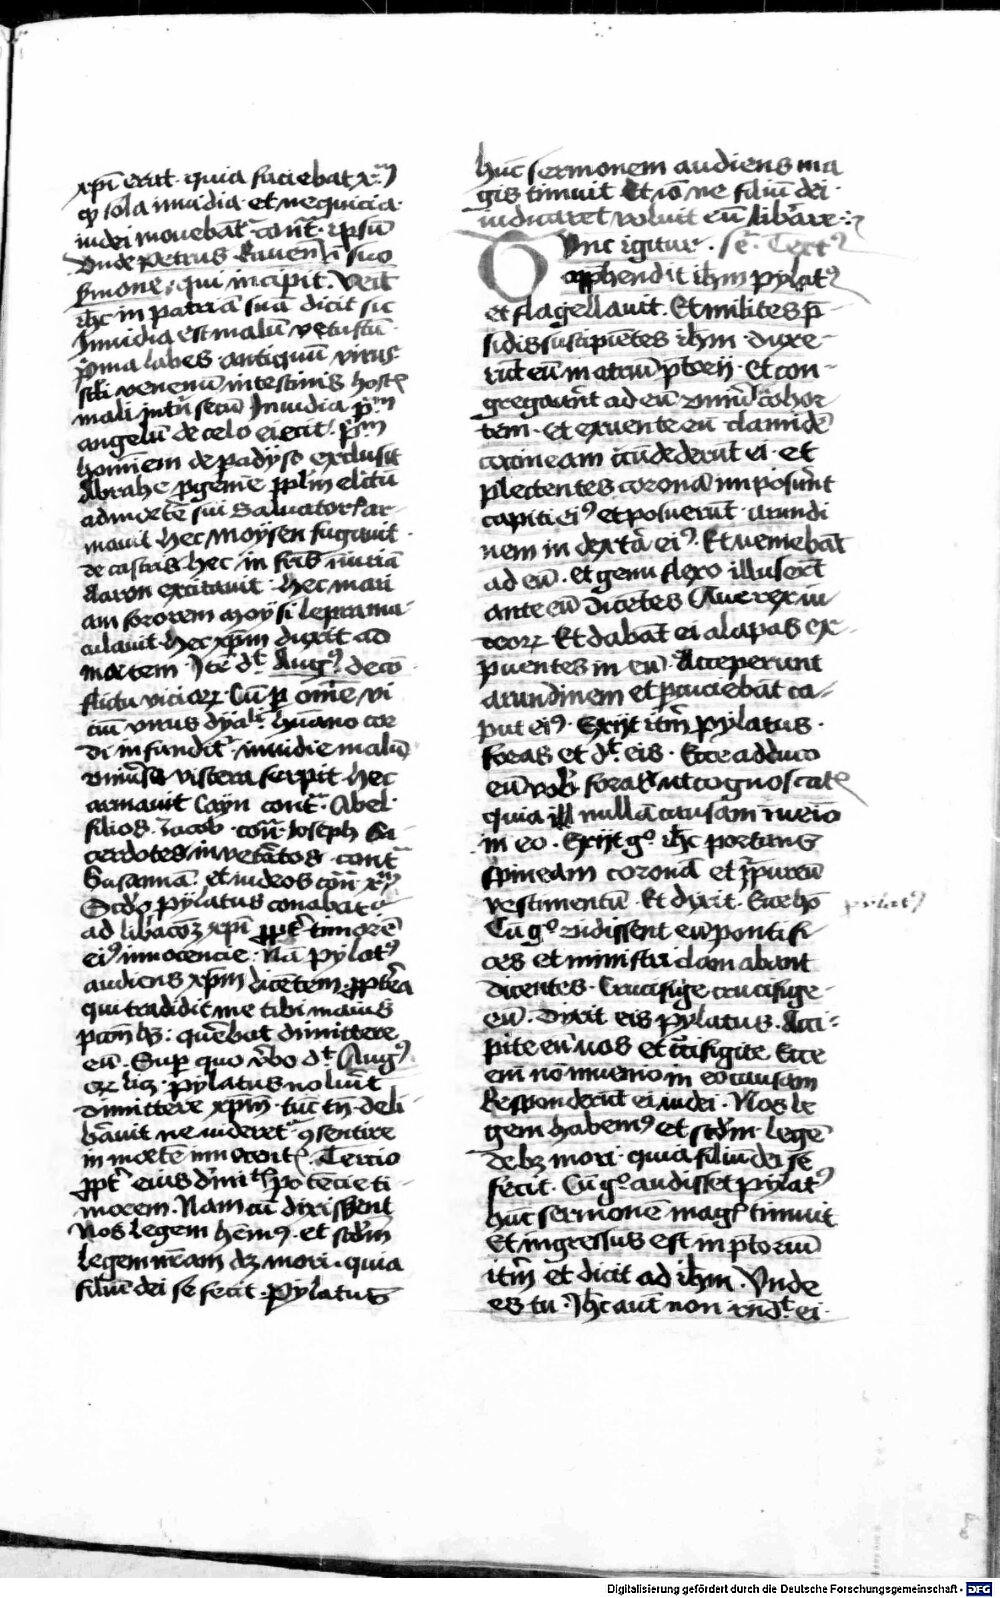 xpi erat. quia sciebat xpm
qp sola inuidia et nequicia
iudei mouebant contra ipsū
Vnde Petrus Rauen in suo
sermone qui incipit. Venit
ihc in patriā suā dicit sic
Inuidia est malū vetustū
pima labes. antiquū virus
scli venenū
mali Inuidia pm
angelū de celo eiecit. pm
hominem de padyso exclusit
Abrahe pplm
admortē sui Saluatoris ar
mauit. hec Moysen fugauit
de castris hec in fris
Aaron excitauit. hec mari
am sororem Moysi lepra ma
culauit. hec xpm duxit ad
mortem. Itē dt Augꝰ de cō
flictu vicioꝝ. Cū p om̄e vi
ciū virus dyali humano cor
di infundit. inuidie malū
vniūsa viscera serpit. hec
armauit Cayn contᵃ Abel.
filios Jacob. contᵃ Ioseph Sa
cerdotes inuetatos. contᵃ
Susannā. et iudeos contᵃ xpm
Scdo pylatus conabatᵘʳ
ad libacōꝫ xpi ppt timorē
eiꝰ innocencie. Nā pylatꝰ
audiens xpm dicētem. ppterea
qui tradidit me tibi maius
pctm hꝫ. querebat dimittere
eū. Sup quo vbo dt Augꝰ
pylatus noluit
dimittere xpm. tūc tn deli
bauit ne videretᵘʳ ꝯsentire
in mortē innocentis. Tercio
ppt eius potēcie ti
morem. Nam cū dixissent
Nos legem hēmꝰ. et scdm
legem nrām dꝫ mori. quia
filiū dei se fecit. Pylatus
hūc sermonem audiens ma
gis timuit Et iō ne filiū dei
iudicaret voluit eū libare
Tunc igitur. Textꝰ
apphendit ihm pylatꝰ
et flagellauit. Et milites p
sidis suscipiētes ihm duxe-
rūt eū in atriū ptorij. Et con-
gregauerūt ad eū vniūsā cohor
tem. et exuente eū clamidē
coccineam circūdederūt ei. et
plectentes coronā imposuerūt
capiti eiꝰ et posuerūt arundi
nem in dextā eiꝰ. Et veniebāt
ad eū. et genu flexo illuserūt
ante eū dicētes Aue rex iu
deoꝝ Et dabāt ei alapas ex
puentes in eū. Acceperunt
arundinem et pcuciebāt ca-
put eiꝰ. Exijt itm pylatus
foras et dt eis. Ecce adduco
eū vobis foras ut cognoscatis
quia nullā causam inueio
in eo. Exijt gᵒ ihc portans
spineam coronā et purpureū
vestimentū. Et dixit. Ecce hō
Pylatꝰ
Cū gᵒ vidissent eū pontifi
ces et ministri clamabant
dicentes. Crucifige crucifige
eū. Dixit eis pylatus. Acci-
pite eū vos et crucifigite Ecce
em nō inuenio in eo causam
Responderūt ei iudei. Nos le
gem habemꝰ et scdm legē
debꝫ mori. quia filiū dei se
fecit. Cū gᵒ audisset pilatꝰ
hūc sermonē magis timuit
Et ingressus est in ptoriū
itm et dicit ad ihm. Vnde
es tu. Ihc aut non rndt ei.
Digitalisierung gefördert durch die Deutsche Forschungsgemeinschaft - DFG